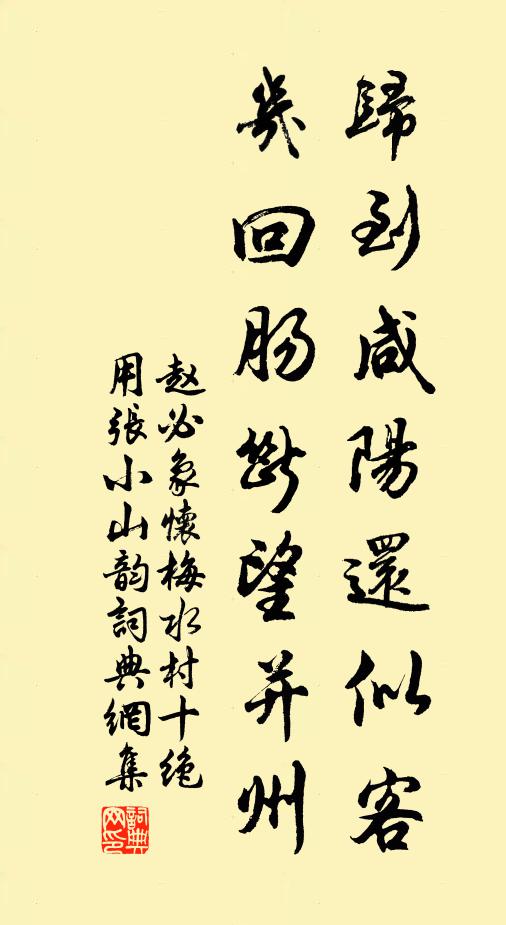 歸到咸陽還似客
幾回腸斷望并州
赵必象懷梅水村十绝
用張小山韵詞典網集
詞典网印